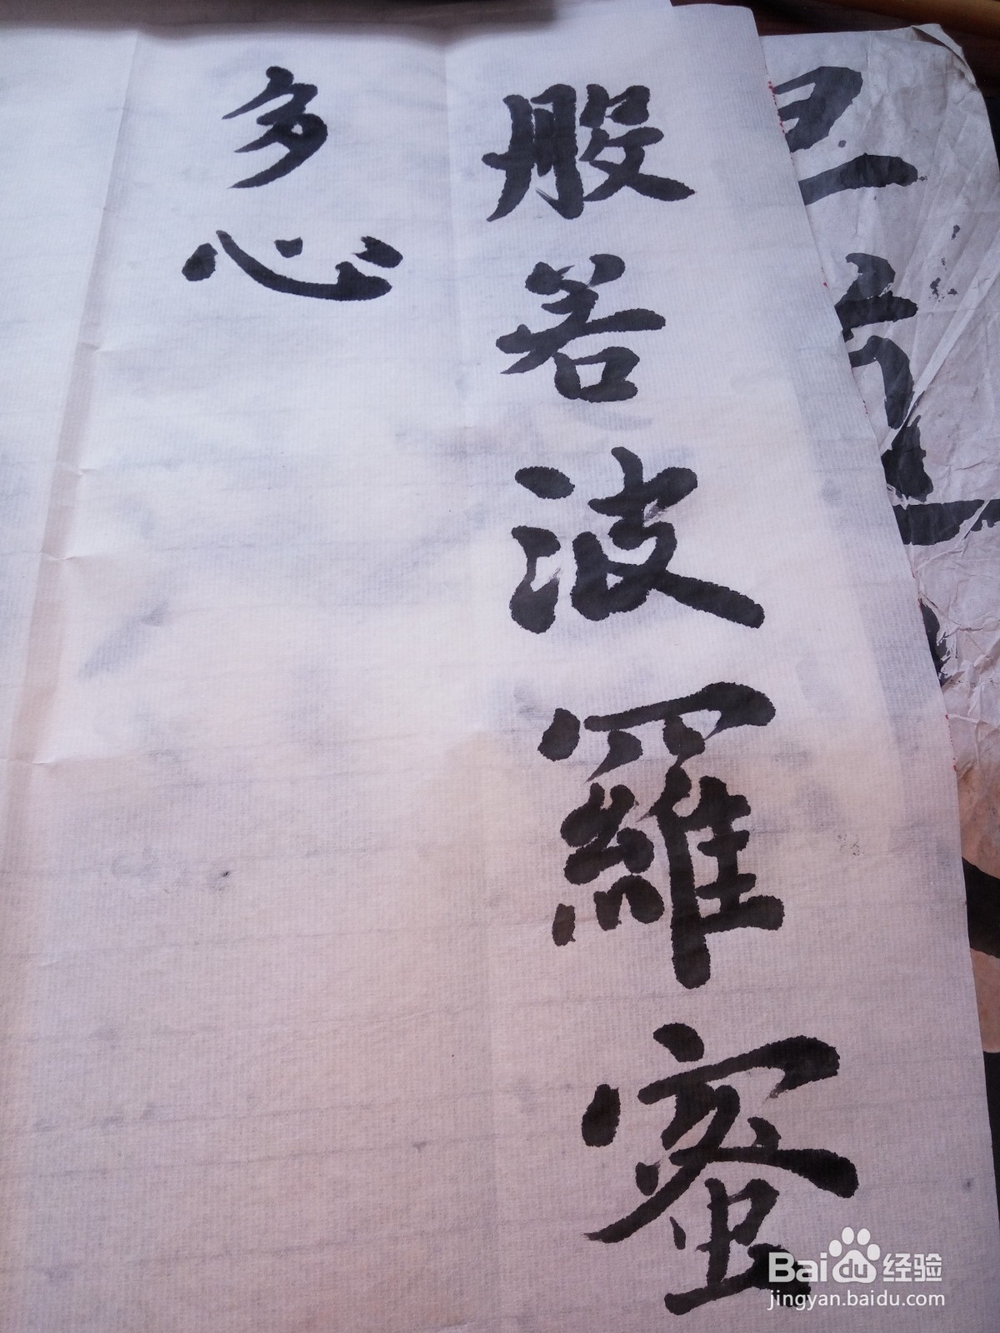 般若波羅蜜
多心
Baidu经验
jingyan.baidu.com